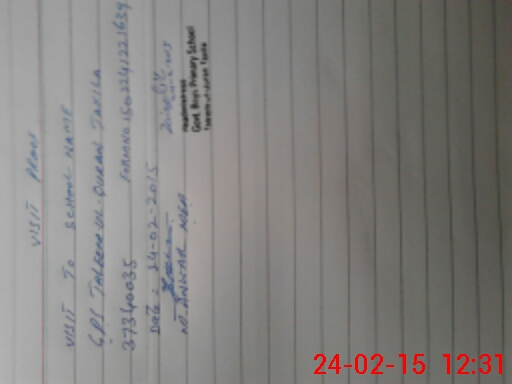 VISIT PROOF
VISIT TO SCHOOL NAME
GPS TALEEM-UL-QURAN TAXILA
37340035 FORM NO. 15022412216
Date: 24-02-2015
ANWAR
Headmistress
Govt. Boys Primary School
Taleem-ul-Quran Taxila
24-02-15 12:31